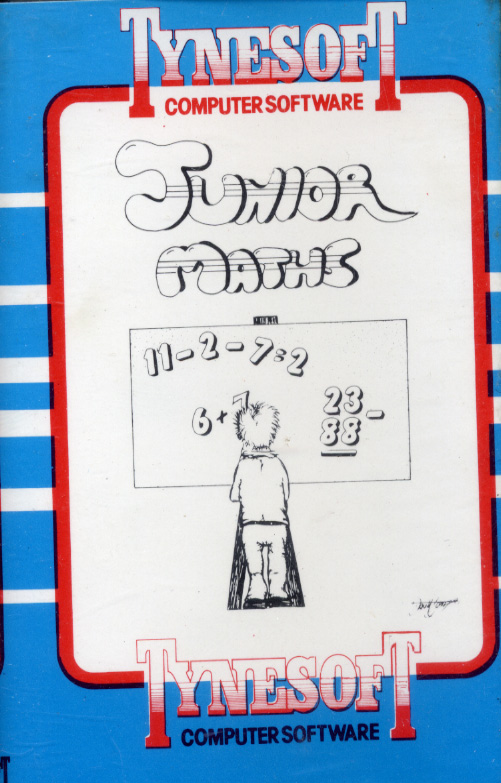 TYNESOFT
COMPUTER SOFTWARE
JUNIOR
MATHS
11-2-7=2
6+7
23-
88
TYNESOFT
COMPUTER SOFTWARE